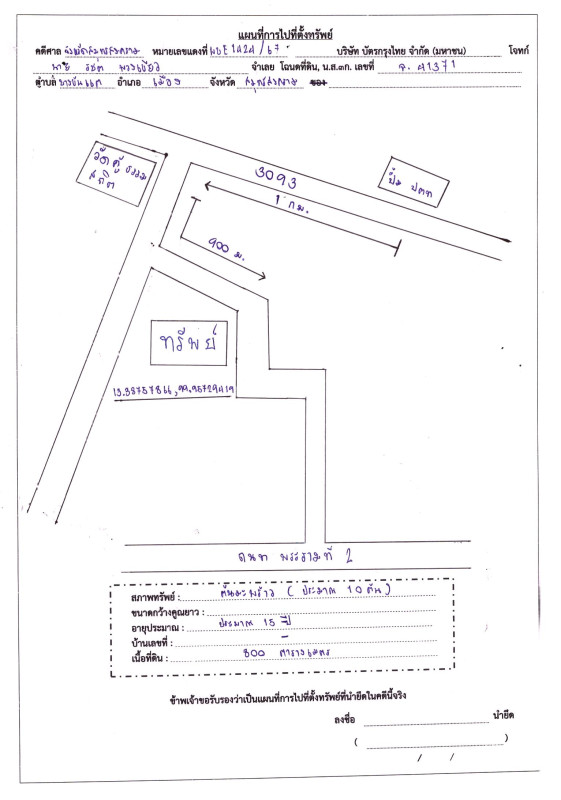 แผนที่การไปที่ตั้งทรัพย์
คดีศาล จังหวัดสมุทรสงคราม หมายเลขแดงที่ ผบE1424/67 บริษัท บัตรกรุงไทย จำกัด (มหาชน) โจทก์
นาย จำเลย โฉนดที่ดิน, น.ส.๓ก. เลขที่ จ. 41371
ตำบล บางขันแตก อำเภอ เมือง จังหวัด สมุทรสงคราม ของ
วัดคู้ธรรม
สถิต
3093
ปั๊ม ปตท
1 กม.
900 ม.
ทรัพย์
13.38757866, 99.95729419
ถนน พระรามที่ 2
สภาพทรัพย์ : ต้นมะพร้าว ( ประมาณ 10 ต้น )
ขนาดกว้างคูณยาว :
อายุประมาณ : ประมาณ 15 ปี
บ้านเลขที่ : -
เนื้อที่ดิน : 800 ตารางเมตร
ข้าพเจ้าขอรับรองว่าเป็นแผนที่การไปที่ตั้งทรัพย์ที่นำยึดในคดีนี้จริง
ลงชื่อ นำยึด
( )
/ /